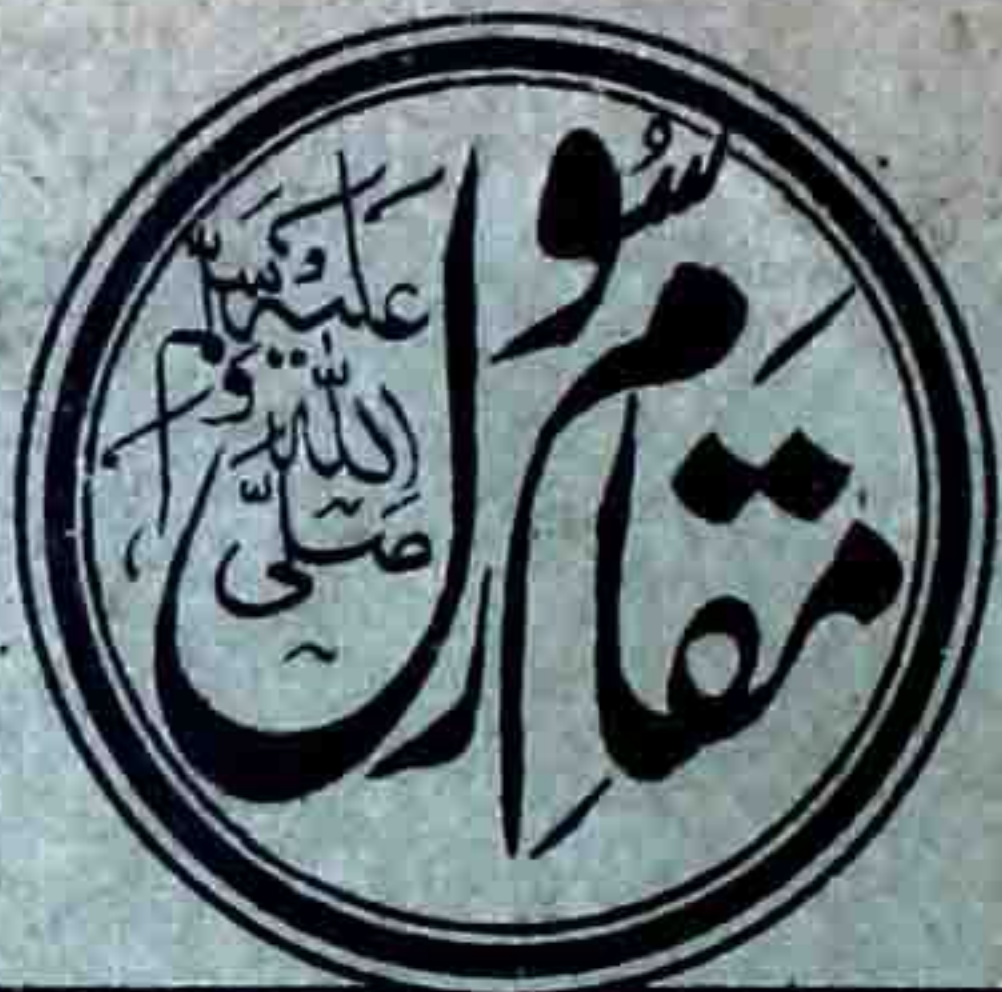 مقامِ رسُول
صَلَّی اللّٰہ عَلَیْہِ وَسَلَّم